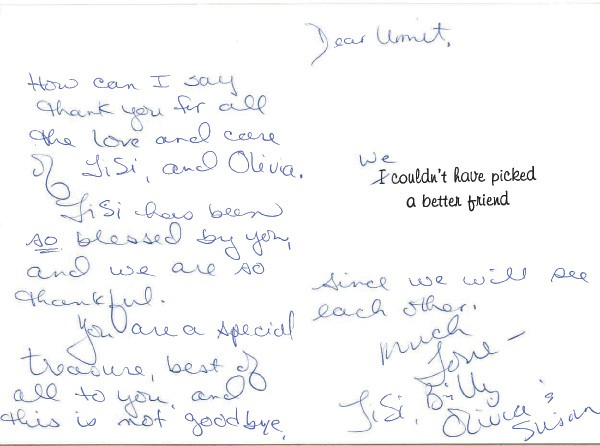 Dear Ummet,
How can I say
thank you for all
the love and care
of JiSi, and Olivia.
JiSi has been
so blessed by you,
and we are so
thankful.
You are a special
treasure, best of
all to you, and
this is not goodbye,
We
I couldn't have picked
a better friend
since we will see
each other.
Much
Love -
JiSi, Billy
Olivia &
Susan